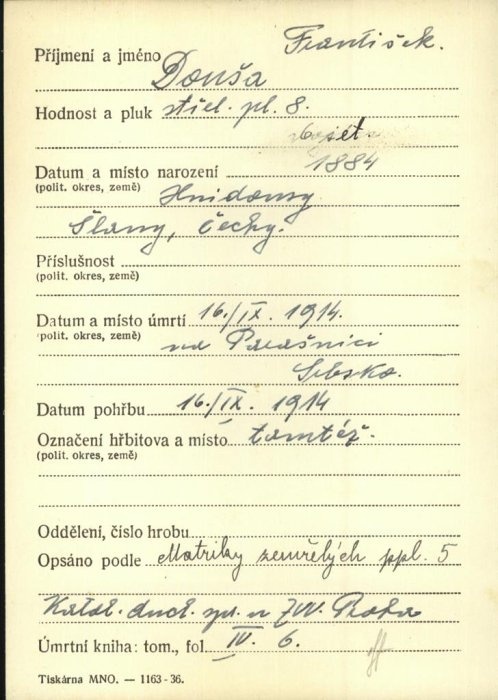 František.
Příjmení a jméno Douša
Hodnost a pluk střel. pl. 8.
1884
Datum a místo narození
(polit. okres, země) Hnidousy
Slany, Čechy.
Příslušnost
(polit. okres, země)
Datum a místo úmrtí 16./IX. 1914.
(polit. okres, země) na
Srbsko.
Datum pohřbu 16./IX. 1914
Označení hřbitova a místo tamtéž.
(polit. okres, země)
Oddělení, číslo hrobu
Opsáno podle Matriky zemřelých ppl. 5
Katol. duch. spr. u ZVV. Praha
Úmrtní kniha: tom., fol. IV. 6.
Tiskárna MNO. — 1163-36.